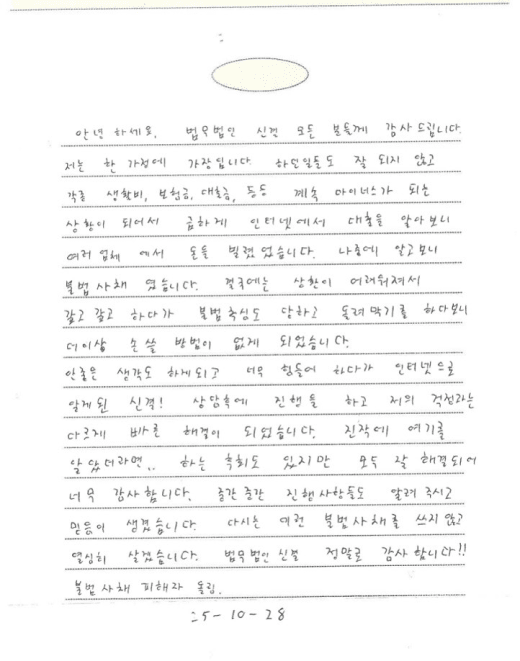 안녕하세요. 법무법인 신결 모든 분들께 감사드립니다.
저는 한 가정에 가장입니다. 하던일들도 잘 되지 않고
각종 생활비, 보험금, 대출금, 등등 계속 마이너스가 되는
상황이 되어서 급하게 인터넷에서 대출을 알아보니
여러 업체 에서 돈을 빌렸었습니다. 나중에 알고보니
불법사채 였습니다. 결국에는 상황이 어려워져서
갚고 갚고 하다가 불법추심도 당하고 돌려막기를 하다보니
더이상 손 쓸 방법이 없게 되었습니다.
안좋은 생각도 하게되고 너무 힘들어 하다가 인터넷으로
알게된 신결! 상담후에 진행을 하고 저의 걱정과는
다르게 빠른 해결이 되었습니다. 진작에 여기를
알았더라면.. 하는 후회도 있지만 모두 잘 해결되어
너무 감사합니다. 중간중간 진행사항들도 알려주시고
믿음이 생겼습니다. 다시는 이런 불법사채를 쓰지않고
열심히 살겠습니다. 법무법인 신결 정말로 감사합니다!!
불법사채 피해자 올림.
5-10-28